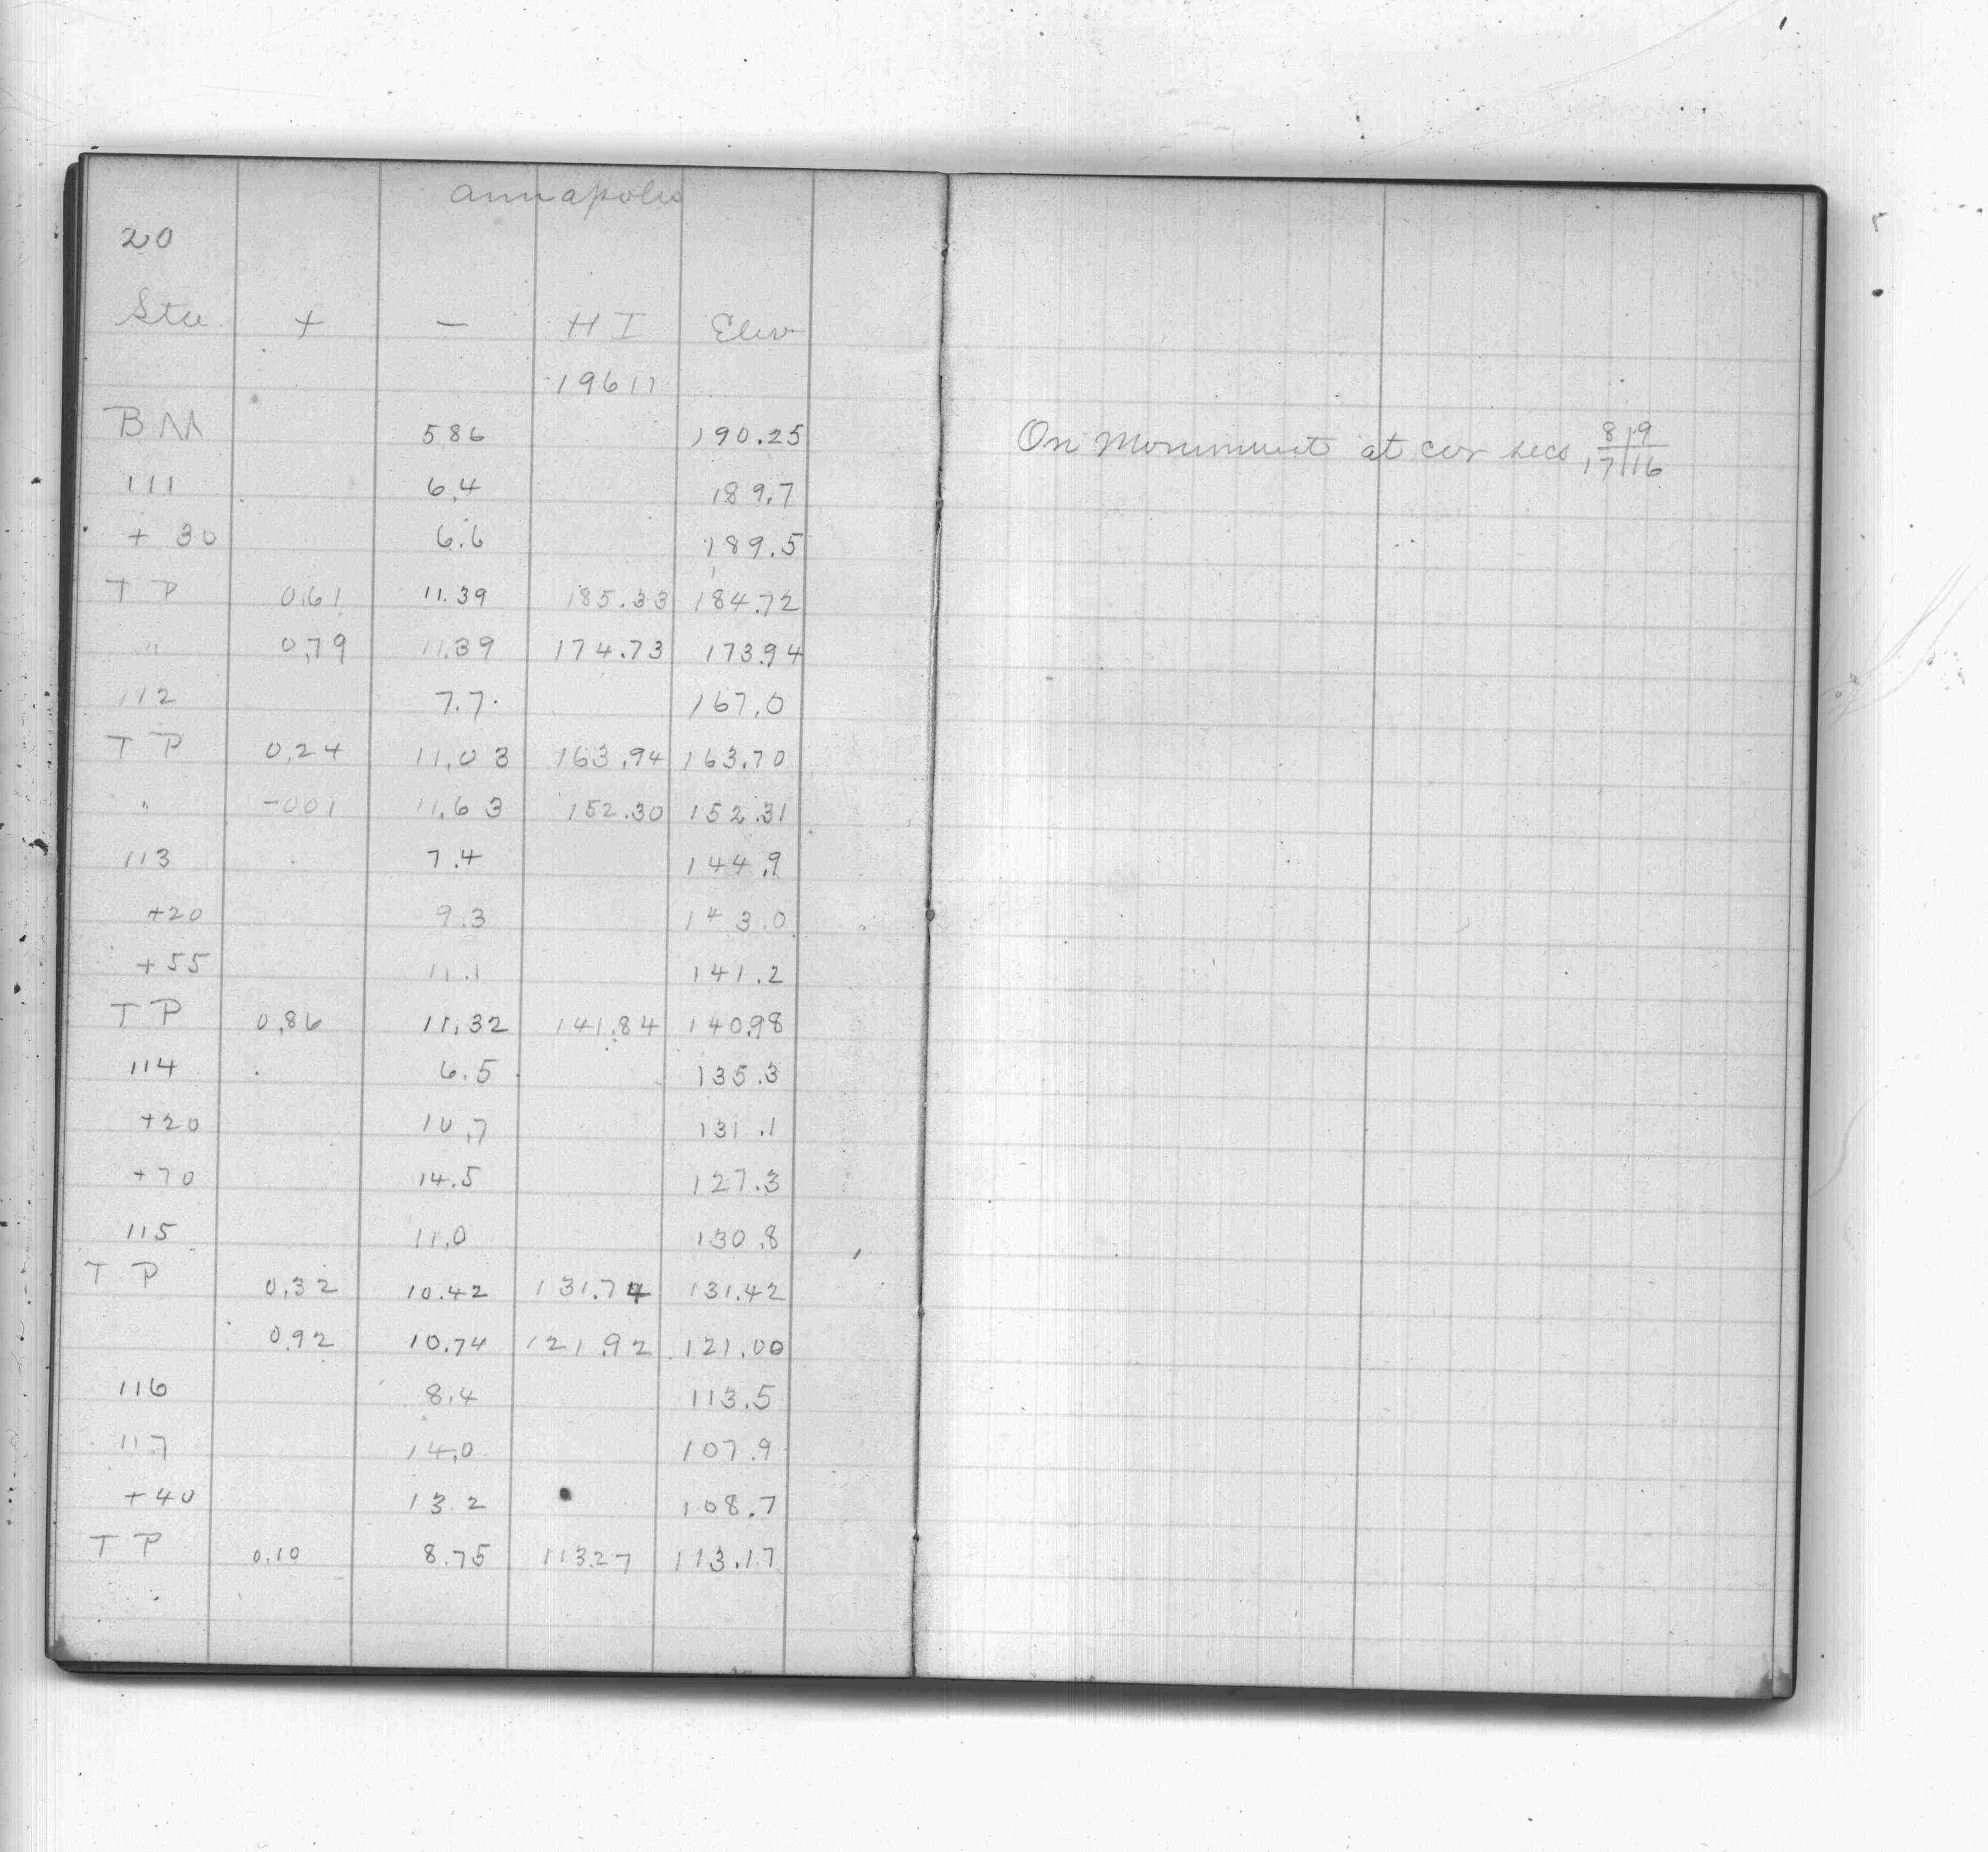 Annapolis
20
Sta + − H I Elev
196 11
BM 586 190.25 On Monument at cor secs 8|9 17|16
111 6.4 189.7
+ 30 6.6 189.5
T P 0.61 11.39 185.33 184.72
" 0.79 11.39 174.73 173.94
112 7.7 167.0
T P 0.24 11.03 163.94 163.70
" -001 11.63 152.30 152.31
113 7.4 144.9
+20 9.3 143.0
+55 11.1 141.2
T P 0.86 11.32 141.84 140.98
114 6.5 135.3
+20 10.7 131.1
+70 14.5 127.3
115 11.0 130.8
T P 0.32 10.42 131.74 131.42
0.92 10.74 121.92 121.00
116 8.4 113.5
117 14.0 107.9
+40 13.2 108.7
T P 0.10 8.75 113.27 113.17